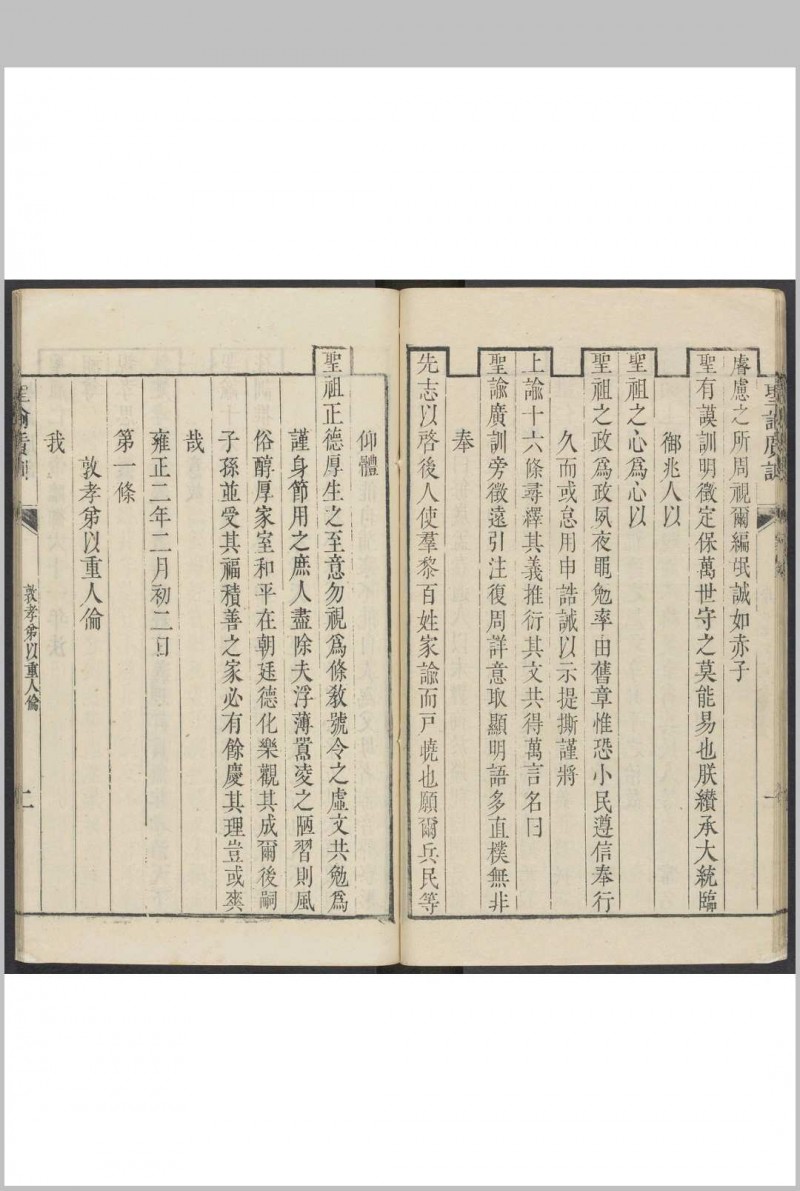 聖諭廣訓
睿慮之所周視爾編氓誠如赤子
聖有謨訓明徵定保萬世守之莫能易也朕纘承大統臨
御兆人以
聖祖之心爲心以
聖祖之政爲政夙夜黽勉率由舊章惟恐小民遵信奉行
久而或怠用申誥誡以示提撕謹將
上諭十六條尋繹其義推衍其文共得萬言名曰
聖諭廣訓旁徵遠引注復周詳意取顯明語多直樸無非
奉
先志以啓後人使羣黎百姓家諭而戸曉也願爾兵民等
仰體
聖祖正德厚生之至意勿視爲條敎號令之虛文共勉爲
謹身節用之庶人盡除夫浮薄囂凌之陋習則風
俗醇厚家室和平在朝廷德化樂觀其成爾後嗣
子孫並受其福積善之家必有餘慶其理豈或爽
哉
雍正二年二月初二日
第一條
敦孝弟以重人倫
我
聖諭廣訓
敦孝弟以重人倫
二